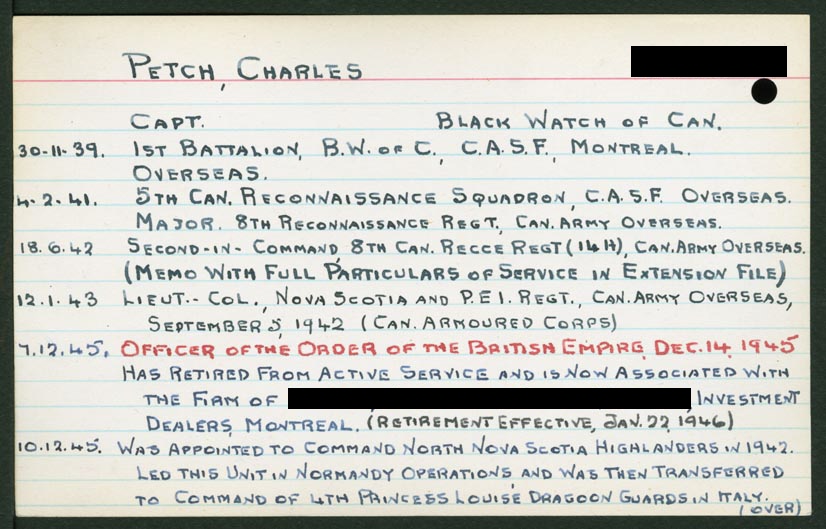 PETCH, CHARLES
CAPT. BLACK WATCH OF CAN.
30-11-39. 1ST BATTALION, B.W. OF C., C.A.S.F., MONTREAL.
OVERSEAS.
4-2-41. 5TH CAN. RECONNAISSANCE SQUADRON, C.A.S.F. OVERSEAS.
MAJOR. 8TH RECONNAISSANCE REGT, CAN. ARMY OVERSEAS.
18.6.42 SECOND-IN-COMMAND, 8TH CAN. RECCE REGT (14H), CAN. ARMY OVERSEAS.
(MEMO WITH FULL PARTICULARS OF SERVICE IN EXTENSION FILE)
12.1.43 LIEUT.-COL., NOVA SCOTIA AND P.E.I. REGT., CAN. ARMY OVERSEAS,
SEPTEMBER 5, 1942 (CAN. ARMOURED CORPS)
7.12.45. OFFICER OF THE ORDER OF THE BRITISH EMPIRE, DEC. 14, 1945
HAS RETIRED FROM ACTIVE SERVICE AND IS NOW ASSOCIATED WITH
THE FIRM OF , INVESTMENT
DEALERS, MONTREAL. (RETIREMENT EFFECTIVE, JAN. 22, 1946)
10.12.45. WAS APPOINTED TO COMMAND NORTH NOVA SCOTIA HIGHLANDERS IN 1942.
LED THIS UNIT IN NORMANDY OPERATIONS, AND WAS THEN TRANSFERRED
TO COMMAND OF 4TH PRINCESS LOUISE DRAGOON GUARDS IN ITALY.
(OVER)